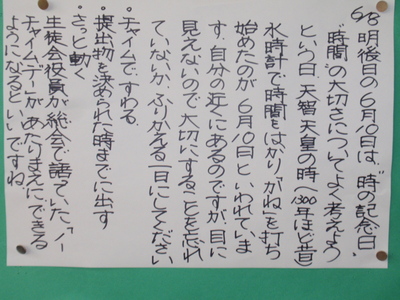 6/8 明後日の6月10日は、"時の記念日、
"時間"の大切さについてよく考えよう
という日、天智天皇の時へ1300年ほど昔)
水時計で時間をはかり「がね」を打ち
始めたのが、6月10日といわれていま
す。自分の近くにあるのですが、目に
見えないので大切にすることを忘れ
ていないか、ふりかえる一日にしてください
・チャイムですわる
・提出物を決められた時までに出す
・さっと動く
生徒会役員が総会で語っていた、「ノー
チャイムデー」があたりまえにできる
ようになるといいですね。